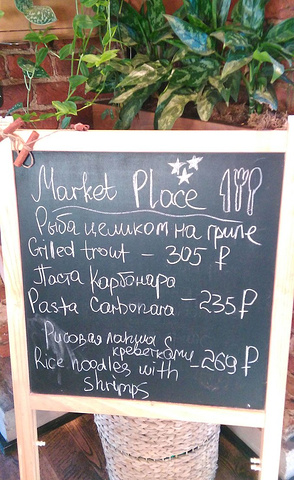 Market Place
Рыба целиком на гриле
Gilled trout - 305 ₽
Паста Карбонара
Pasta Carbonara - 235₽
Рисовая лапша с
креветками
Rice noodles with - 269 ₽
shrimps